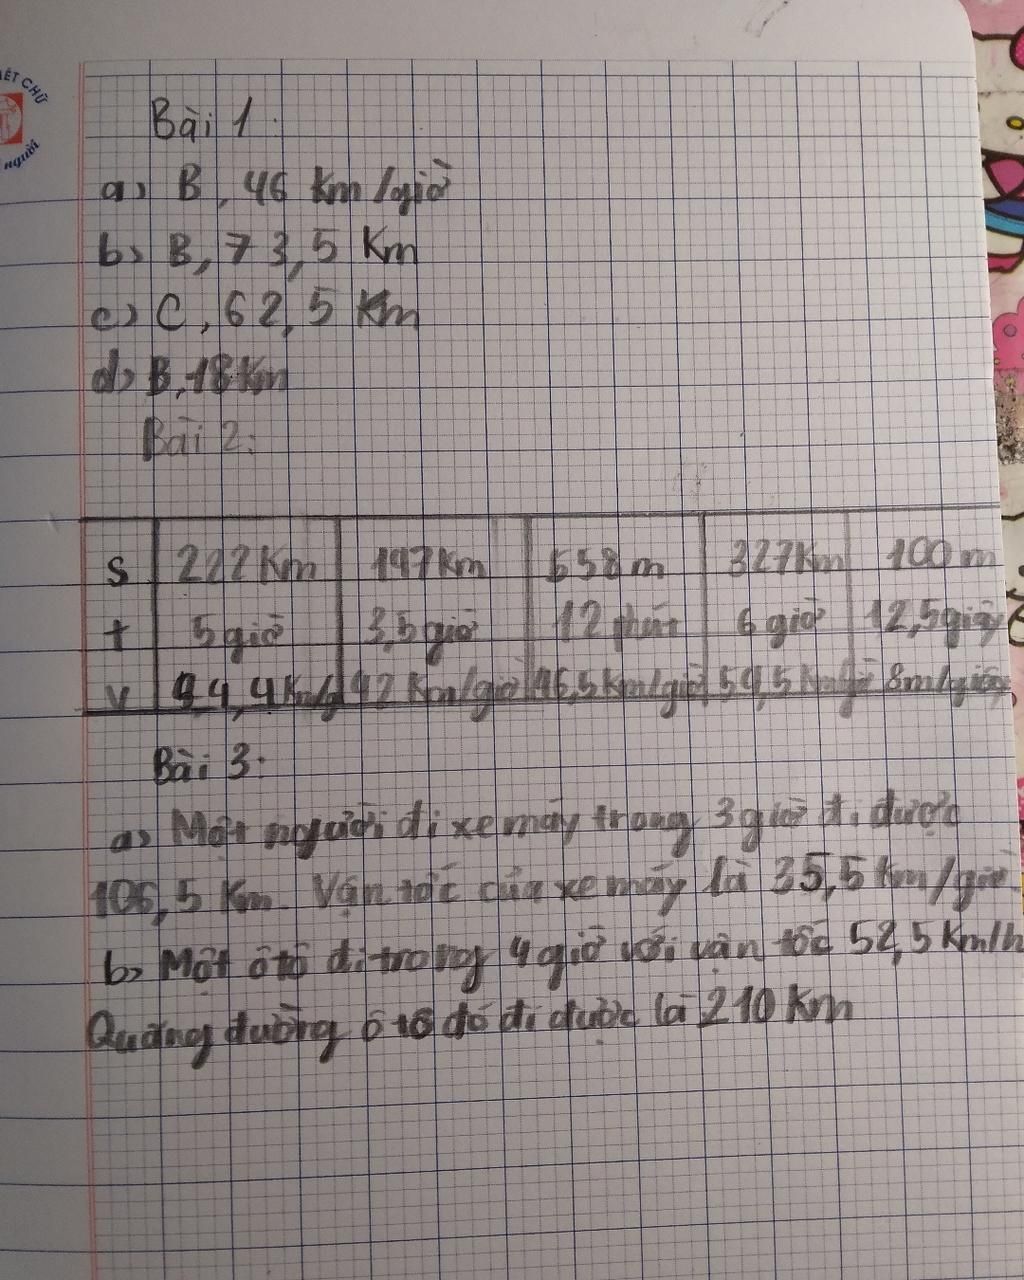 IẾT CHỮ
người
Bài 1.
a) B, 46 km/giờ
b) B, 73,5 Km
c) C, 62,5 Km
d) B, 18 Km
Bài 2:
s 222Km 147Km 558m 327Km 100m
t 5 giờ 3,5 giờ 12 phút 6 giờ 12,5giây
v 44,4Km/g 42 Km/giờ 46,5km/giờ 54,5 Km/giờ 8m/giây
Bài 3:
a) Một người đi xe máy trong 3 giờ đi được
106,5 Km. Vận tốc của xe máy là 35,5 km/giờ.
b) Một ô tô đi trong 4 giờ với vận tốc 52,5 Km/h
Quãng đường ô tô đó đi được là 210 Km